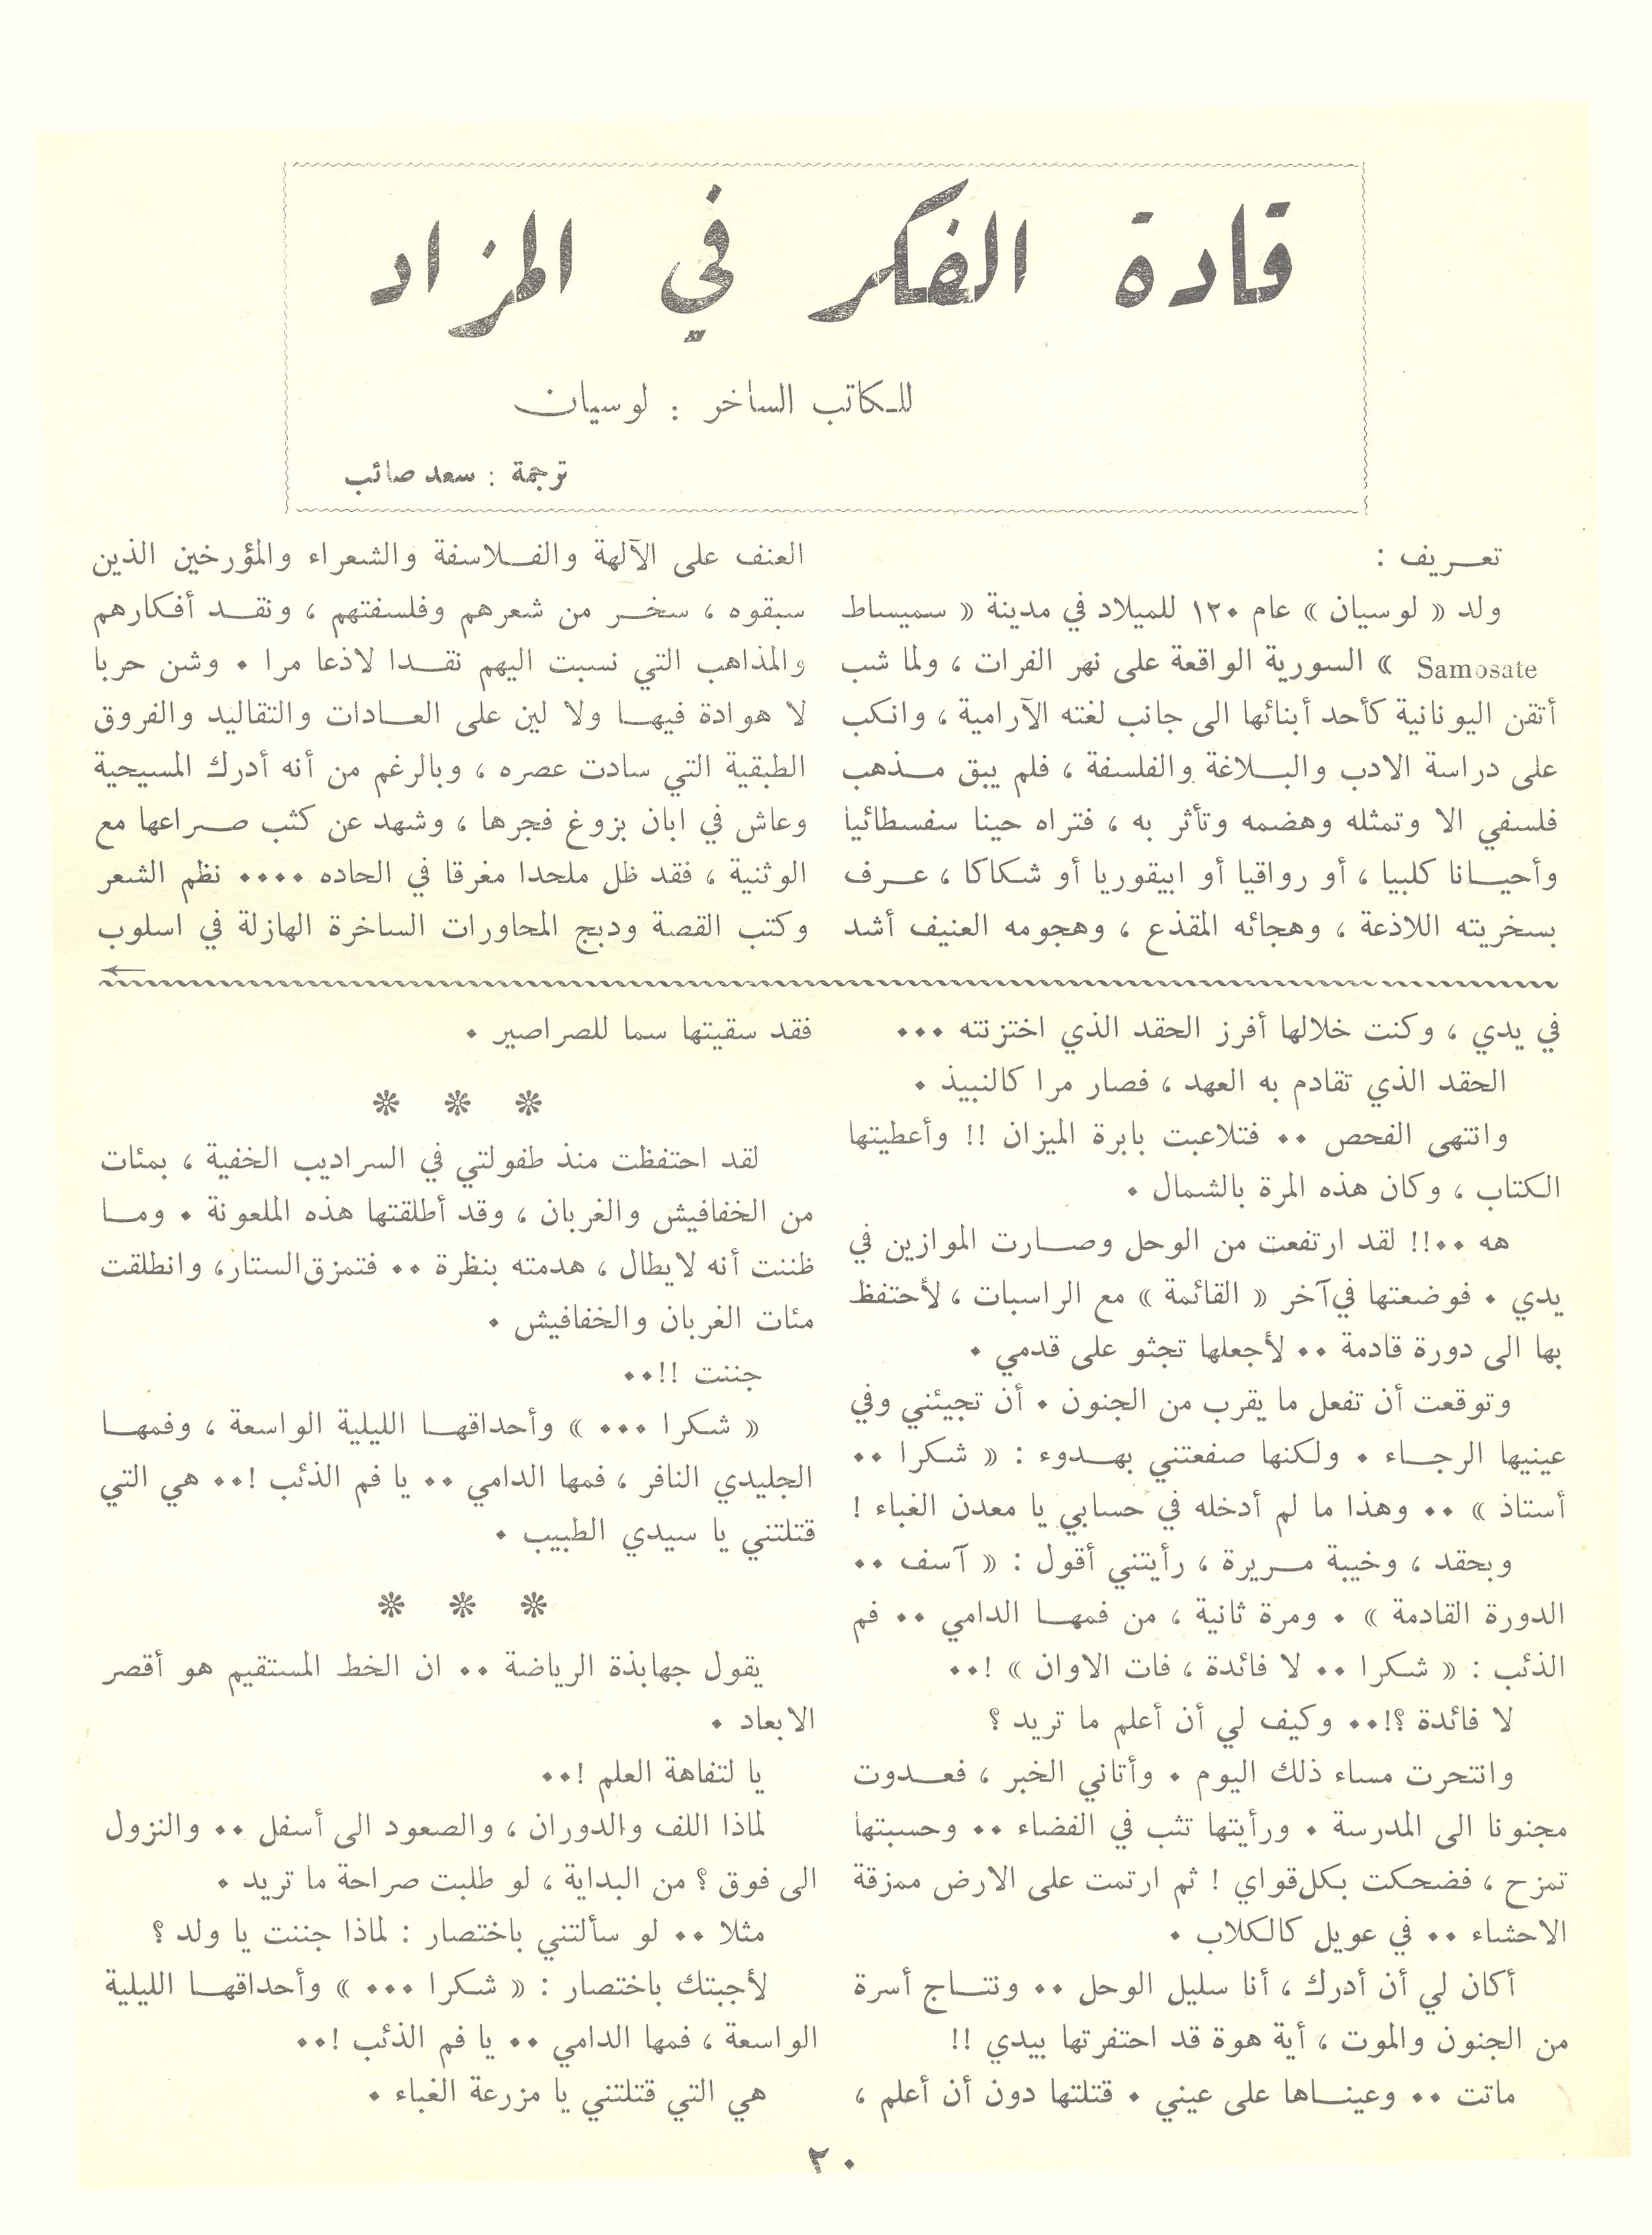 قادة الفكر في المزاد
للكاتب الساخر : لوسيان
ترجمة : سعد صائب
تعريف :
ولد « لوسيان » عام ١٢٠ للميلاد في مدينة « سميساط
Samosate » السورية الواقعة على نهر الفرات ، ولما شب
أتقن اليونانية كأحد أبنائها الى جانب لغته الآرامية ، وانكب
على دراسة الادب والبلاغة والفلسفة ، فلم يبق مذهب
فلسفي الا وتمثله وهضمه وتأثر به ، فتراه حينا سفسطائيا
وأحيانا كلبيا ، أو رواقيا أو ابيقوريا أو شكاكا ، عرف
بسخريته اللاذعة ، وهجائه المقذع ، وهجومه العنيف أشد
العنف على الآلهة والفلاسفة والشعراء والمؤرخين الذين
سبقوه ، سخر من شعرهم وفلسفتهم ، ونقد أفكارهم
والمذاهب التي نسبت اليهم نقدا لاذعا مرا . وشن حربا
لا هوادة فيها ولا لين على العادات والتقاليد والفروق
الطبقية التي سادت عصره ، وبالرغم من أنه أدرك المسيحية
وعاش في ابان بزوغ فجرها ، وشهد عن كثب صراعها مع
الوثنية ، فقد ظل ملحدا مغرقا في الحاده .... نظم الشعر
وكتب القصة ودبج المحاورات الساخرة الهازلة في اسلوب
في يدي ، وكنت خلالها أفرز الحقد الذي اختزنته ...
الحقد الذي تقادم به العهد ، فصار مرا كالنبيذ .
وانتهى الفحص .. فتلاعبت بابرة الميزان !! وأعطيتها
الكتاب ، وكان هذه المرة بالشمال .
هه ..!! لقد ارتفعت من الوحل وصارت الموازين في
يدي . فوضعتها في آخر « القائمة » مع الراسبات ، لأحتفظ
بها الى دورة قادمة .. لأجعلها تجثو على قدمي .
وتوقعت أن تفعل ما يقرب من الجنون . أن تجيئني وفي
عينيها الرجاء . ولكنها صفعتني بهدوء : « شكرا ..
أستاذ » .. وهذا ما لم أدخله في حسابي يا معدن الغباء !
وبحقد ، وخيبة مريرة ، رأيتني أقول : « آسف ..
الدورة القادمة » . ومرة ثانية ، من فمها الدامي .. فم
الذئب : « شكرا .. لا فائدة ، فات الاوان » !..
لا فائدة ؟!.. وكيف لي أن أعلم ما تريد ؟
وانتحرت مساء ذلك اليوم . وأتاني الخبر ، فعدوت
مجنونا الى المدرسة . ورأيتها تثب في الفضاء .. وحسبتها
تمزح ، فضحكت بكل قواي ! ثم ارتمت على الارض ممزقة
الاحشاء .. في عويل كالكلاب .
أكان لي أن أدرك ، أنا سليل الوحل .. ونتاج أسرة
من الجنون والموت ، أية هوة قد احتفرتها بيدي !!
ماتت .. وعيناها على عيني . قتلتها دون أن أعلم ،
فقد سقيتها سما للصراصير .
❊ ❊ ❊
لقد احتفظت منذ طفولتي في السراديب الخفية ، بمئات
من الخفافيش والغربان ، وقد أطلقتها هذه الملعونة . وما
ظننت أنه لايطال ، هدمته بنظرة .. فتمزق الستار، وانطلقت
مئات الغربان والخفافيش .
جننت !!..
« شكرا ... » وأحداقها الليلية الواسعة ، وفمها
الجليدي النافر ، فمها الدامي .. يا فم الذئب !.. هي التي
قتلتني يا سيدي الطبيب .
❊ ❊ ❊
يقول جهابذة الرياضة .. ان الخط المستقيم هو أقصر
الابعاد .
يا لتفاهة العلم !..
لماذا اللف والدوران ، والصعود الى أسفل .. والنزول
الى فوق ؟ من البداية ، لو طلبت صراحة ما تريد .
مثلا .. لو سألتني باختصار : لماذا جننت يا ولد ؟
لأجبتك باختصار : « شكرا ... » وأحداقها الليلية
الواسعة ، فمها الدامي .. يا فم الذئب !..
هي التي قتلتني يا مزرعة الغباء .
٢٠